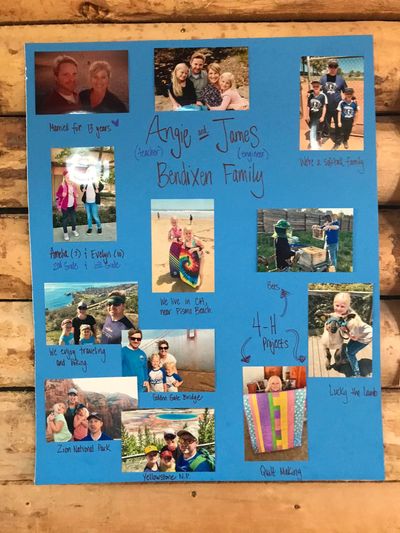 Angie and James
(teacher) (engineer)
Bendixen Family
Married for 13 years
We're a softball family
Amelia (7) & Evelyn (10)
2nd Grade &
We live in CA,
near Pismo Beach
Bees
4-H
Projects
We enjoy traveling
and hiking
Golden Gate Bridge
Lucky the lamb
Zion National Park
Yellowstone N.P.
Quilt Making